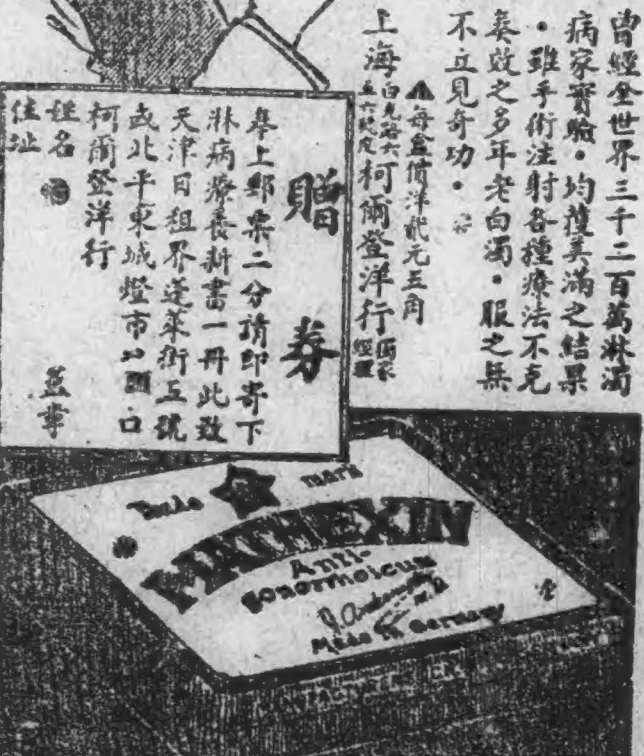 曾經全世界三千二百萬淋濁
病家實驗・均獲美滿之結果
・雖手術注射各種療法不克
奏效之多年老白濁・服之無
不立見奇功・
每盒價洋貳元五角
上海白克路六五六號 柯爾登洋行 獨家經理
贈券
奉上郵票二分請即寄下
淋病療養新書一冊此致
天津日租界蓬萊街五號
或北平東城燈市口
柯爾登洋行
姓名
住址
Trade mark
MATHEXIN
Anti-
gonorrhoicum
Made in Germany